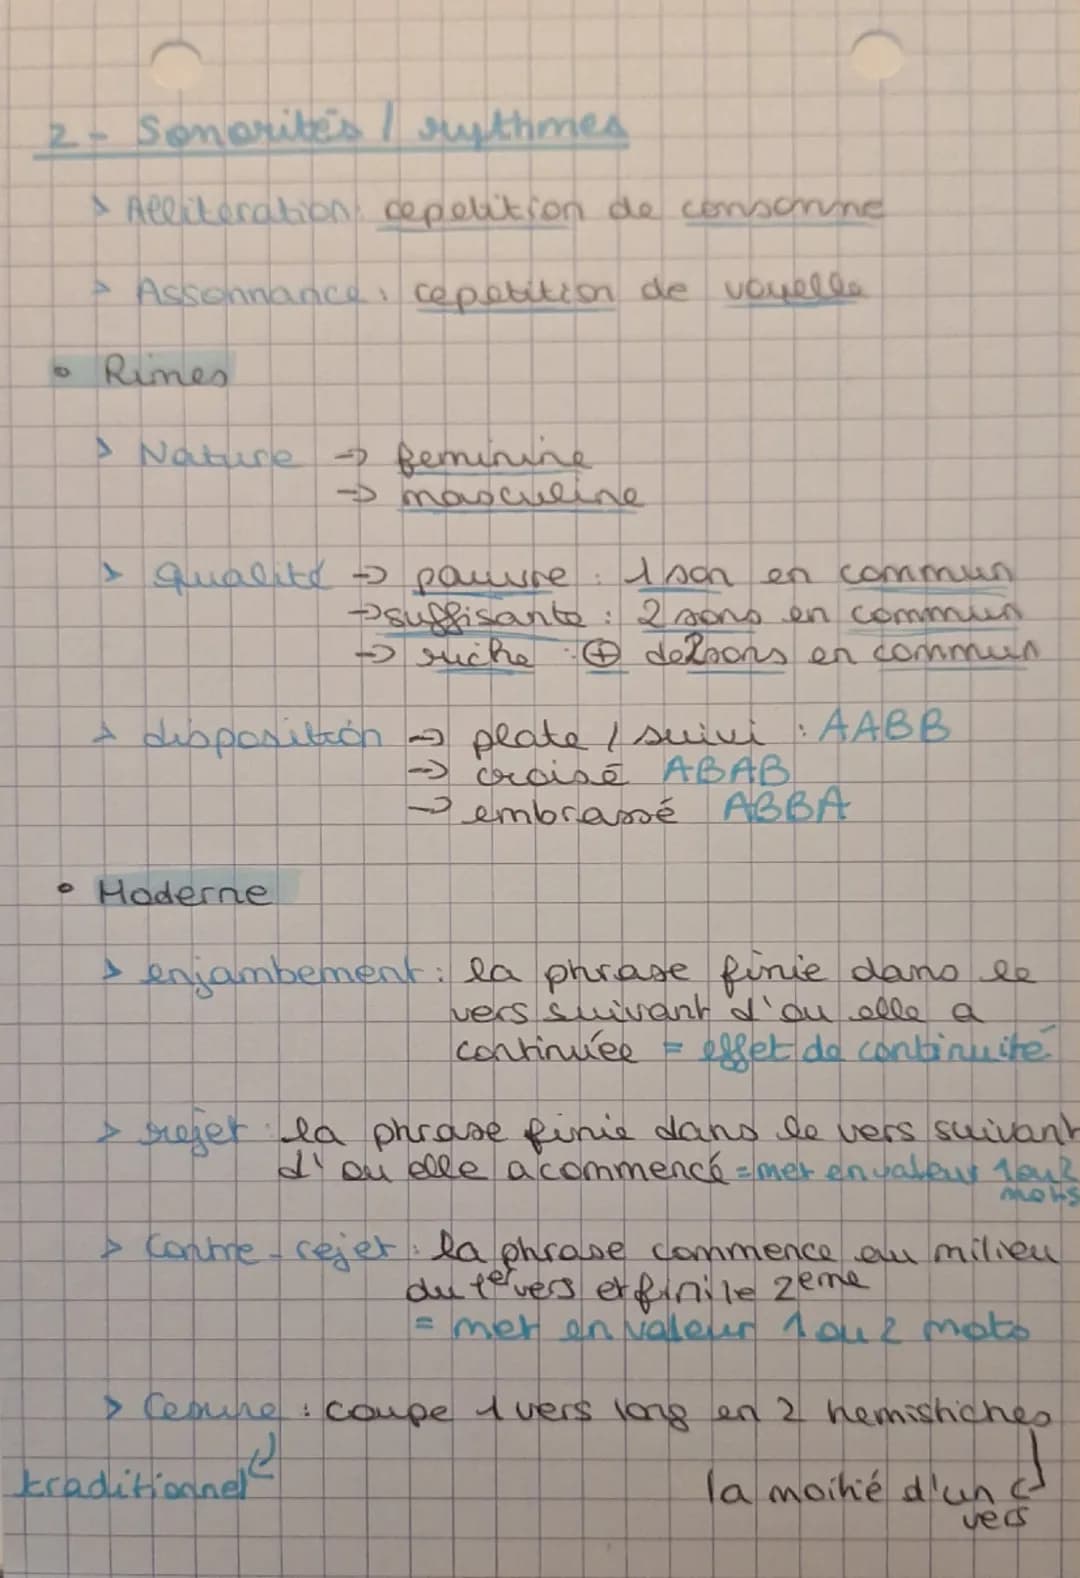 2 - Sonorités / rythmes
> Allitération: repetition de consonne
> Assonnance : repetition de voyelle
• Rimes
> Nature → feminine
→ masculine
> Qualité → pauvre : 1 son en commun
→ suffisante : 2 sons en commun
→ riche : ⊕ de 2 sons en commun
> disposition → plate / suivi : AABB
→ croisé ABAB
→ embrassé ABBA
• Moderne
> enjambement : la phrase finie dans le
vers suivant d'ou elle a
continuée = effet de continuité
> rejet : la phrase finie dans le vers suivant
d'ou elle a commencé = met en valeur 1 ou 2
mots
> Contre-rejet : la phrase commence au milieu
du 1er vers et fini le 2eme
= met en valeur 1 ou 2 mots
> Cesure : coupe 1 vers long en 2 hemistiches
traditionnel
la moitié d'un
vers